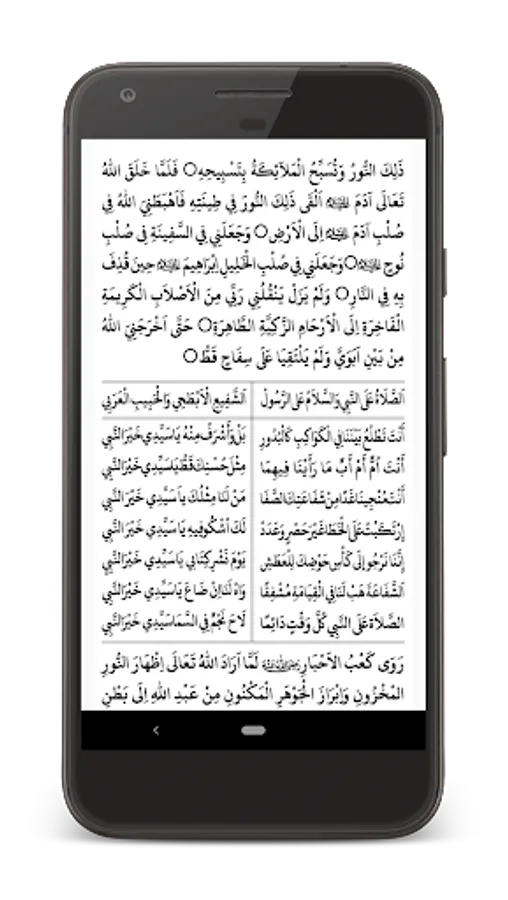 ذَلِكَ النُّورُ وَتُسَبِّحُ الْمَلَآئِكَةُ بِتَسْبِيحِهِ ○ فَلَمَّا خَلَقَ اللهُ
تَعَالَى آدَمَ ﷺ اَلْقَى ذَلِكَ النُّورَ فِي طِينَتِهِ فَاَهْبَطَنِيَ اللهُ فِي
صُلْبِ آدَمَ ﷺ إِلَى الْاَرْضِ ○ وَجَعَلَنِي فِي السَّفِينَةِ فِي صُلْبِ
نُوحٍ ﷺ ○ وَجَعَلَنِي فِي صُلْبِ الْخَلِيلِ إِبْرَاهِيمَ ﷺ حِينَ قُذِفَ
بِهِ فِي النَّارِ ○ وَلَمْ يَزَلْ يَنْقُلُنِي رَبِّي مِنَ الْاَصْلَابِ الْكَرِيمَةِ
الْفَاخِرَةِ إِلَى الْاَرْحَامِ الزَّكِيَّةِ الطَّاهِرَةِ ○ حَتَّى اَخْرَجَنِيَ اللهُ
مِنْ بَيْنِ اَبَوَيَّ وَلَمْ يَلْتَقِيَا عَلَى سِفَاحٍ قَطُّ ○
اَلصَّلَاةُ عَلَى النَّبِي وَالسَّلَامُ عَلَى الرَّسُولْ اَلشَّفِيعِ الْاَبْطَحِي وَالْحَبِيبِ الْعَرَبِي
أَنْتَ تَطْلُعُ بَيْنَنَا فِي الْكَوَاكِبِ كَالْبُدُورِ بَلْ وَأَشْرَفُ مِنْهُ يَا سَيِّدِي خَيْرَ النَّبِي
أَنْتَ اُمٌّ أَمْ أَبٌ مَا رَأَيْنَا فِيهِمَا مِثْلَ حُسْنِكَ قَطُّ يَا سَيِّدِي خَيْرَ النَّبِي
أَنْتَ مُنْجِينَا غَدًا مِنْ شَفَاعَتِكَ الصَّفَا مَنْ لَنَا مِثْلُكَ يَا سَيِّدِي خَيْرَ النَّبِي
إِرْتَكَبْتُ عَلَى الْخَطَا غَيْرَ حَصْرٍ وَعَدَدْ لَكَ اَشْكُو فِيهِ يَا سَيِّدِي خَيْرَ النَّبِي
إِنَّنَا نَرْجُو إِلَى كَأْسِ حَوْضِكَ لِلْعَطَشِ يَوْمَ نَشْرِ كِتَابِي يَا سَيِّدِي خَيْرَ النَّبِي
اَلشَّفَاعَةُ هَبْ لَنَا فِي الْقِيَامَةِ مُشْفِقًا وَاهْ لَنَا اِنْ ضَاعَ يَا سَيِّدِي خَيْرَ النَّبِي
اَلصَّلَاةُ عَلَى النَّبِي كُلَّ وَقْتٍ دَائِمًا لَاحَ نَجْمٌ فِي السَّمَا سَيِّدِي خَيْرَ النَّبِي
رَوَى كَعْبُ الْاَحْبَارِ لَمَّا اَرَادَ اللهُ تَعَالَى اِظْهَارَ النُّورِ
الْمَخْزُونِ وَاِبْرَازَ الْجَوْهَرِ الْمَكْنُونِ مِنْ عَبْدِ اللهِ اِلَى بَطْنِ